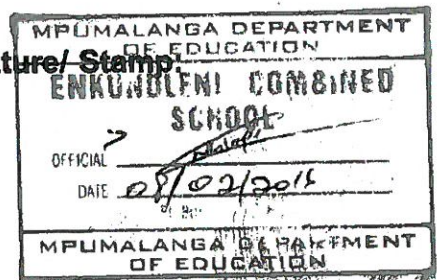 MPUMALANGA DEPARTMENT
OF EDUCATION
ture/ Stamp:
ENKUNDLENI COMBINED
SCHOOL
OFFICIAL
DATE 08/02/2016
MPUMALANGA DEPARTMENT
OF EDUCATION